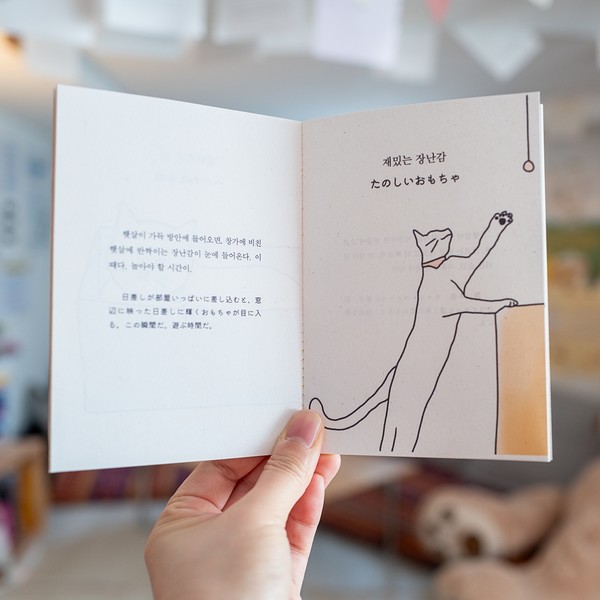 햇살이 가득 방안에 들어오면, 창가에 비친
햇살에 반짝이는 장난감이 눈에 들어온다. 이
때다. 놀아야 할 시간이.
日差しが部屋いっぱいに差し込むと、窓
辺に映った日差しに輝くおもちゃが目に入
る。この瞬間だ。遊ぶ時間だ。
재밌는 장난감
たのしいおもちゃ